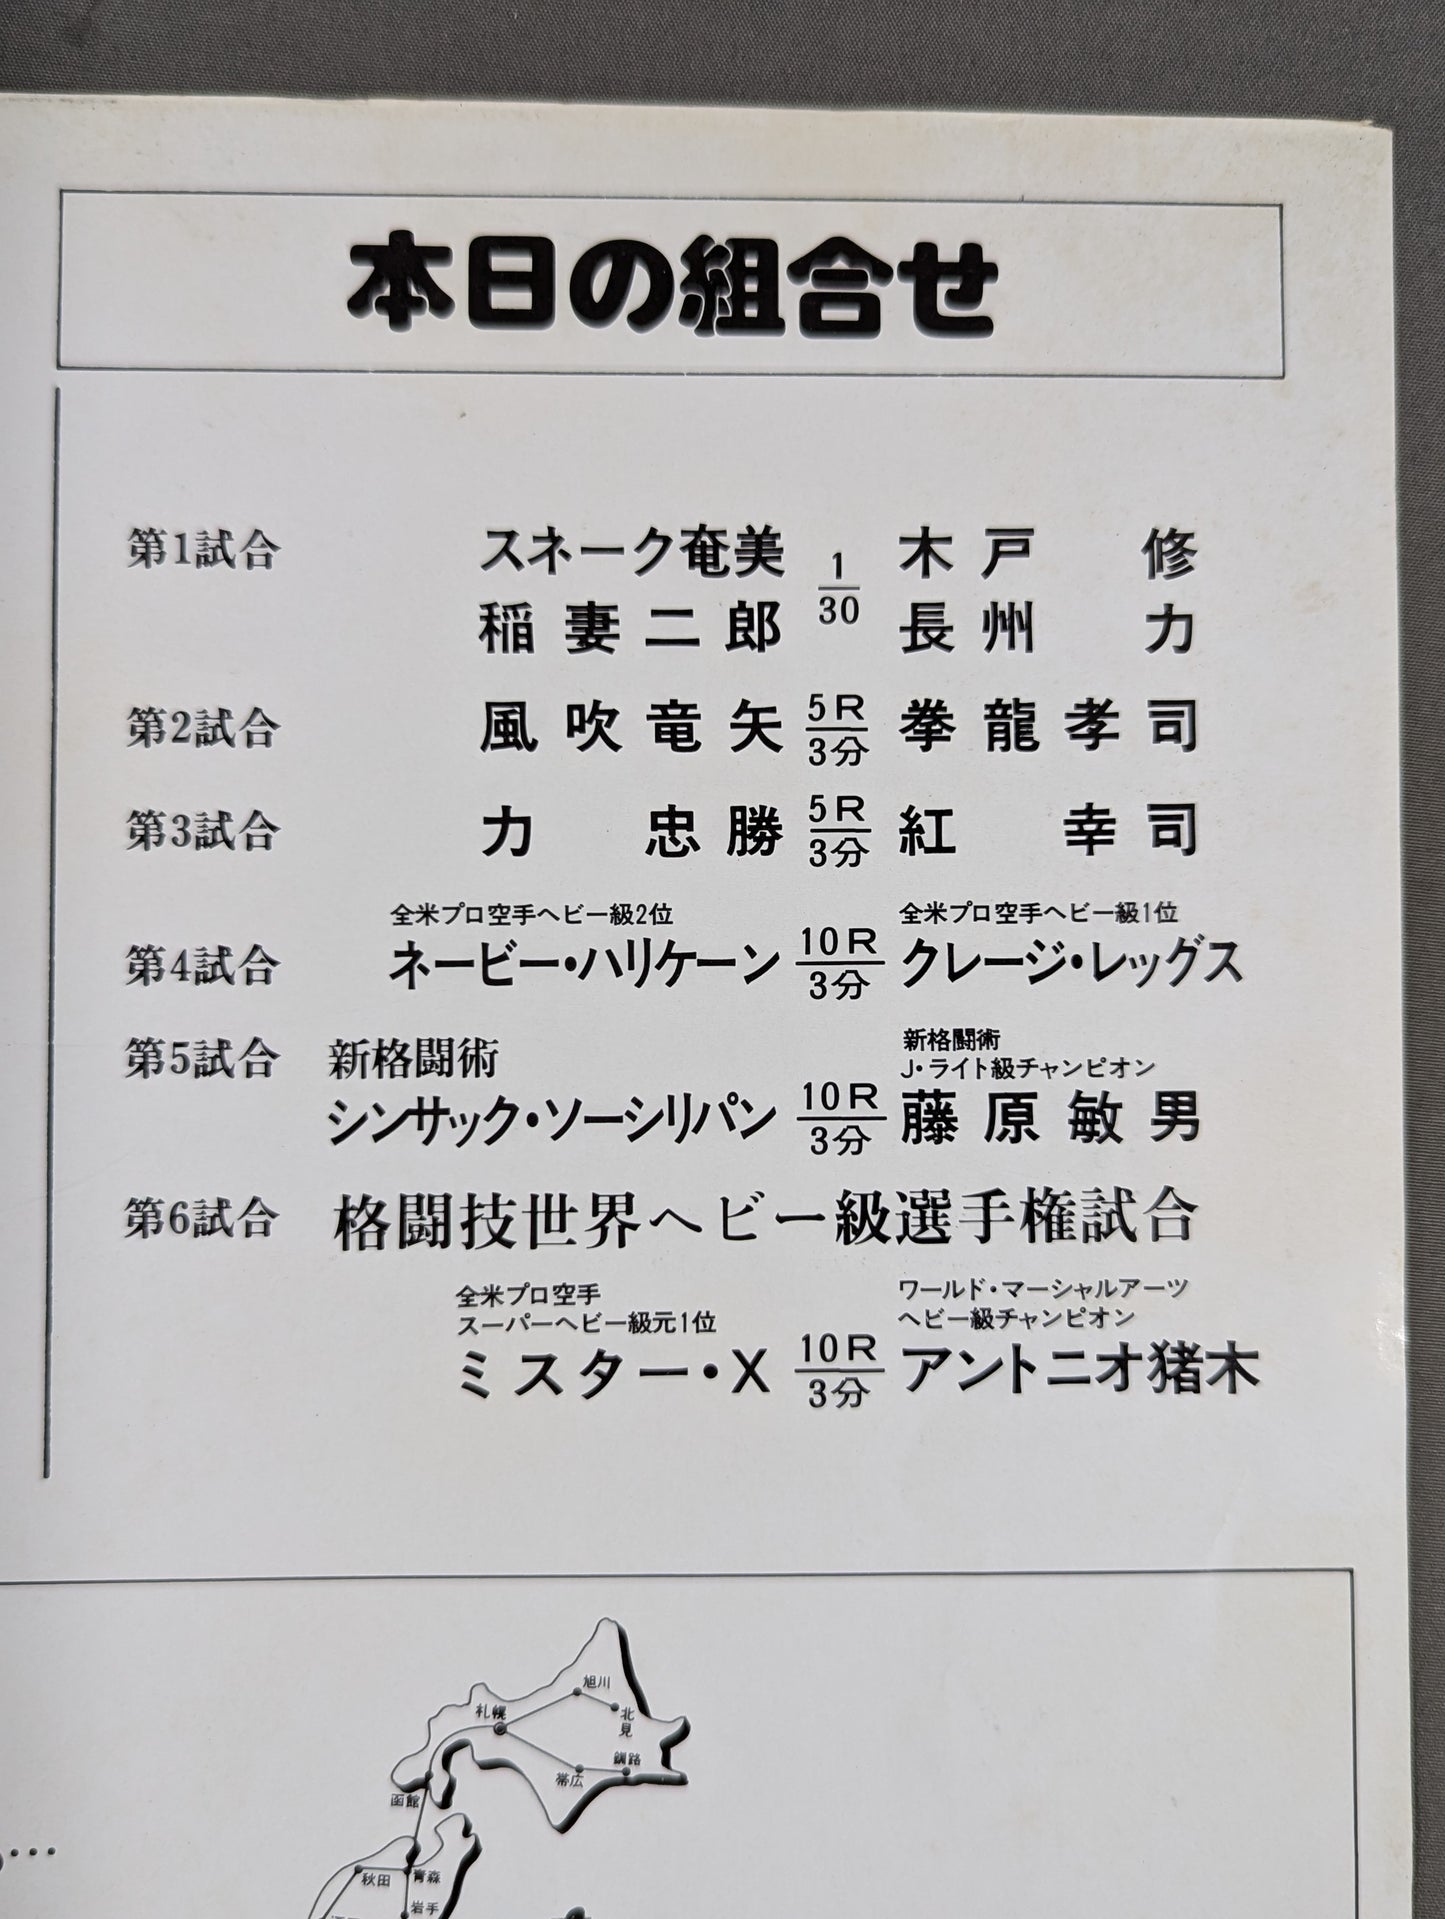 本日の組合せ
第1試合 スネーク奄美 1/30 木戸修
稲妻二郎 長州力
第2試合 風吹竜矢 5R/3分 拳龍孝司
第3試合 力忠勝 5R/3分 紅幸司
全米プロ空手ヘビー級2位 全米プロ空手ヘビー級1位
第4試合 ネービー・ハリケーン 10R/3分 クレージ・レッグス
新格闘術
第5試合 新格闘術 J・ライト級チャンピオン
シンサック・ソーシリパン 10R/3分 藤原敏男
第6試合 格闘技世界ヘビー級選手権試合
全米プロ空手 ワールド・マーシャルアーツ
スーパーヘビー級元1位 ヘビー級チャンピオン
ミスター・X 10R/3分 アントニオ猪木
旭川
札幌
北見
釧路
帯広
函館
秋田
青森
岩手